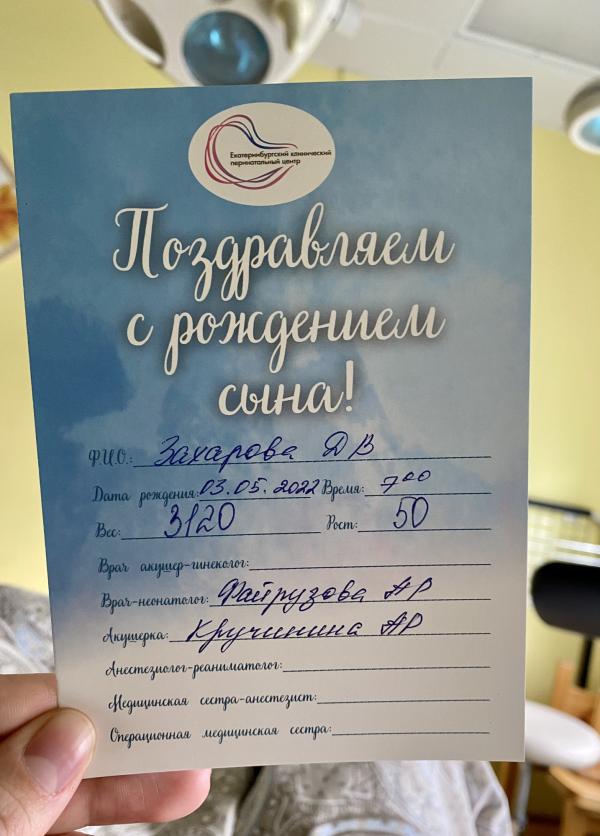 Екатеринбургский клинический
перинатальный центр
Поздравляем
с рождением
сына!
Ф.И.О.: Захарова Д В
Дата рождения: 03.05.2022 Время: 7⁰⁰
Вес: 3120 Рост: 50
Врач акушер-гинеколог:
Врач-неонатолог: Файрузова АР
Акушерка: Кручинина АР
Анестезиолог-реаниматолог:
Медицинская сестра-анестезист:
Операционная медицинская сестра: